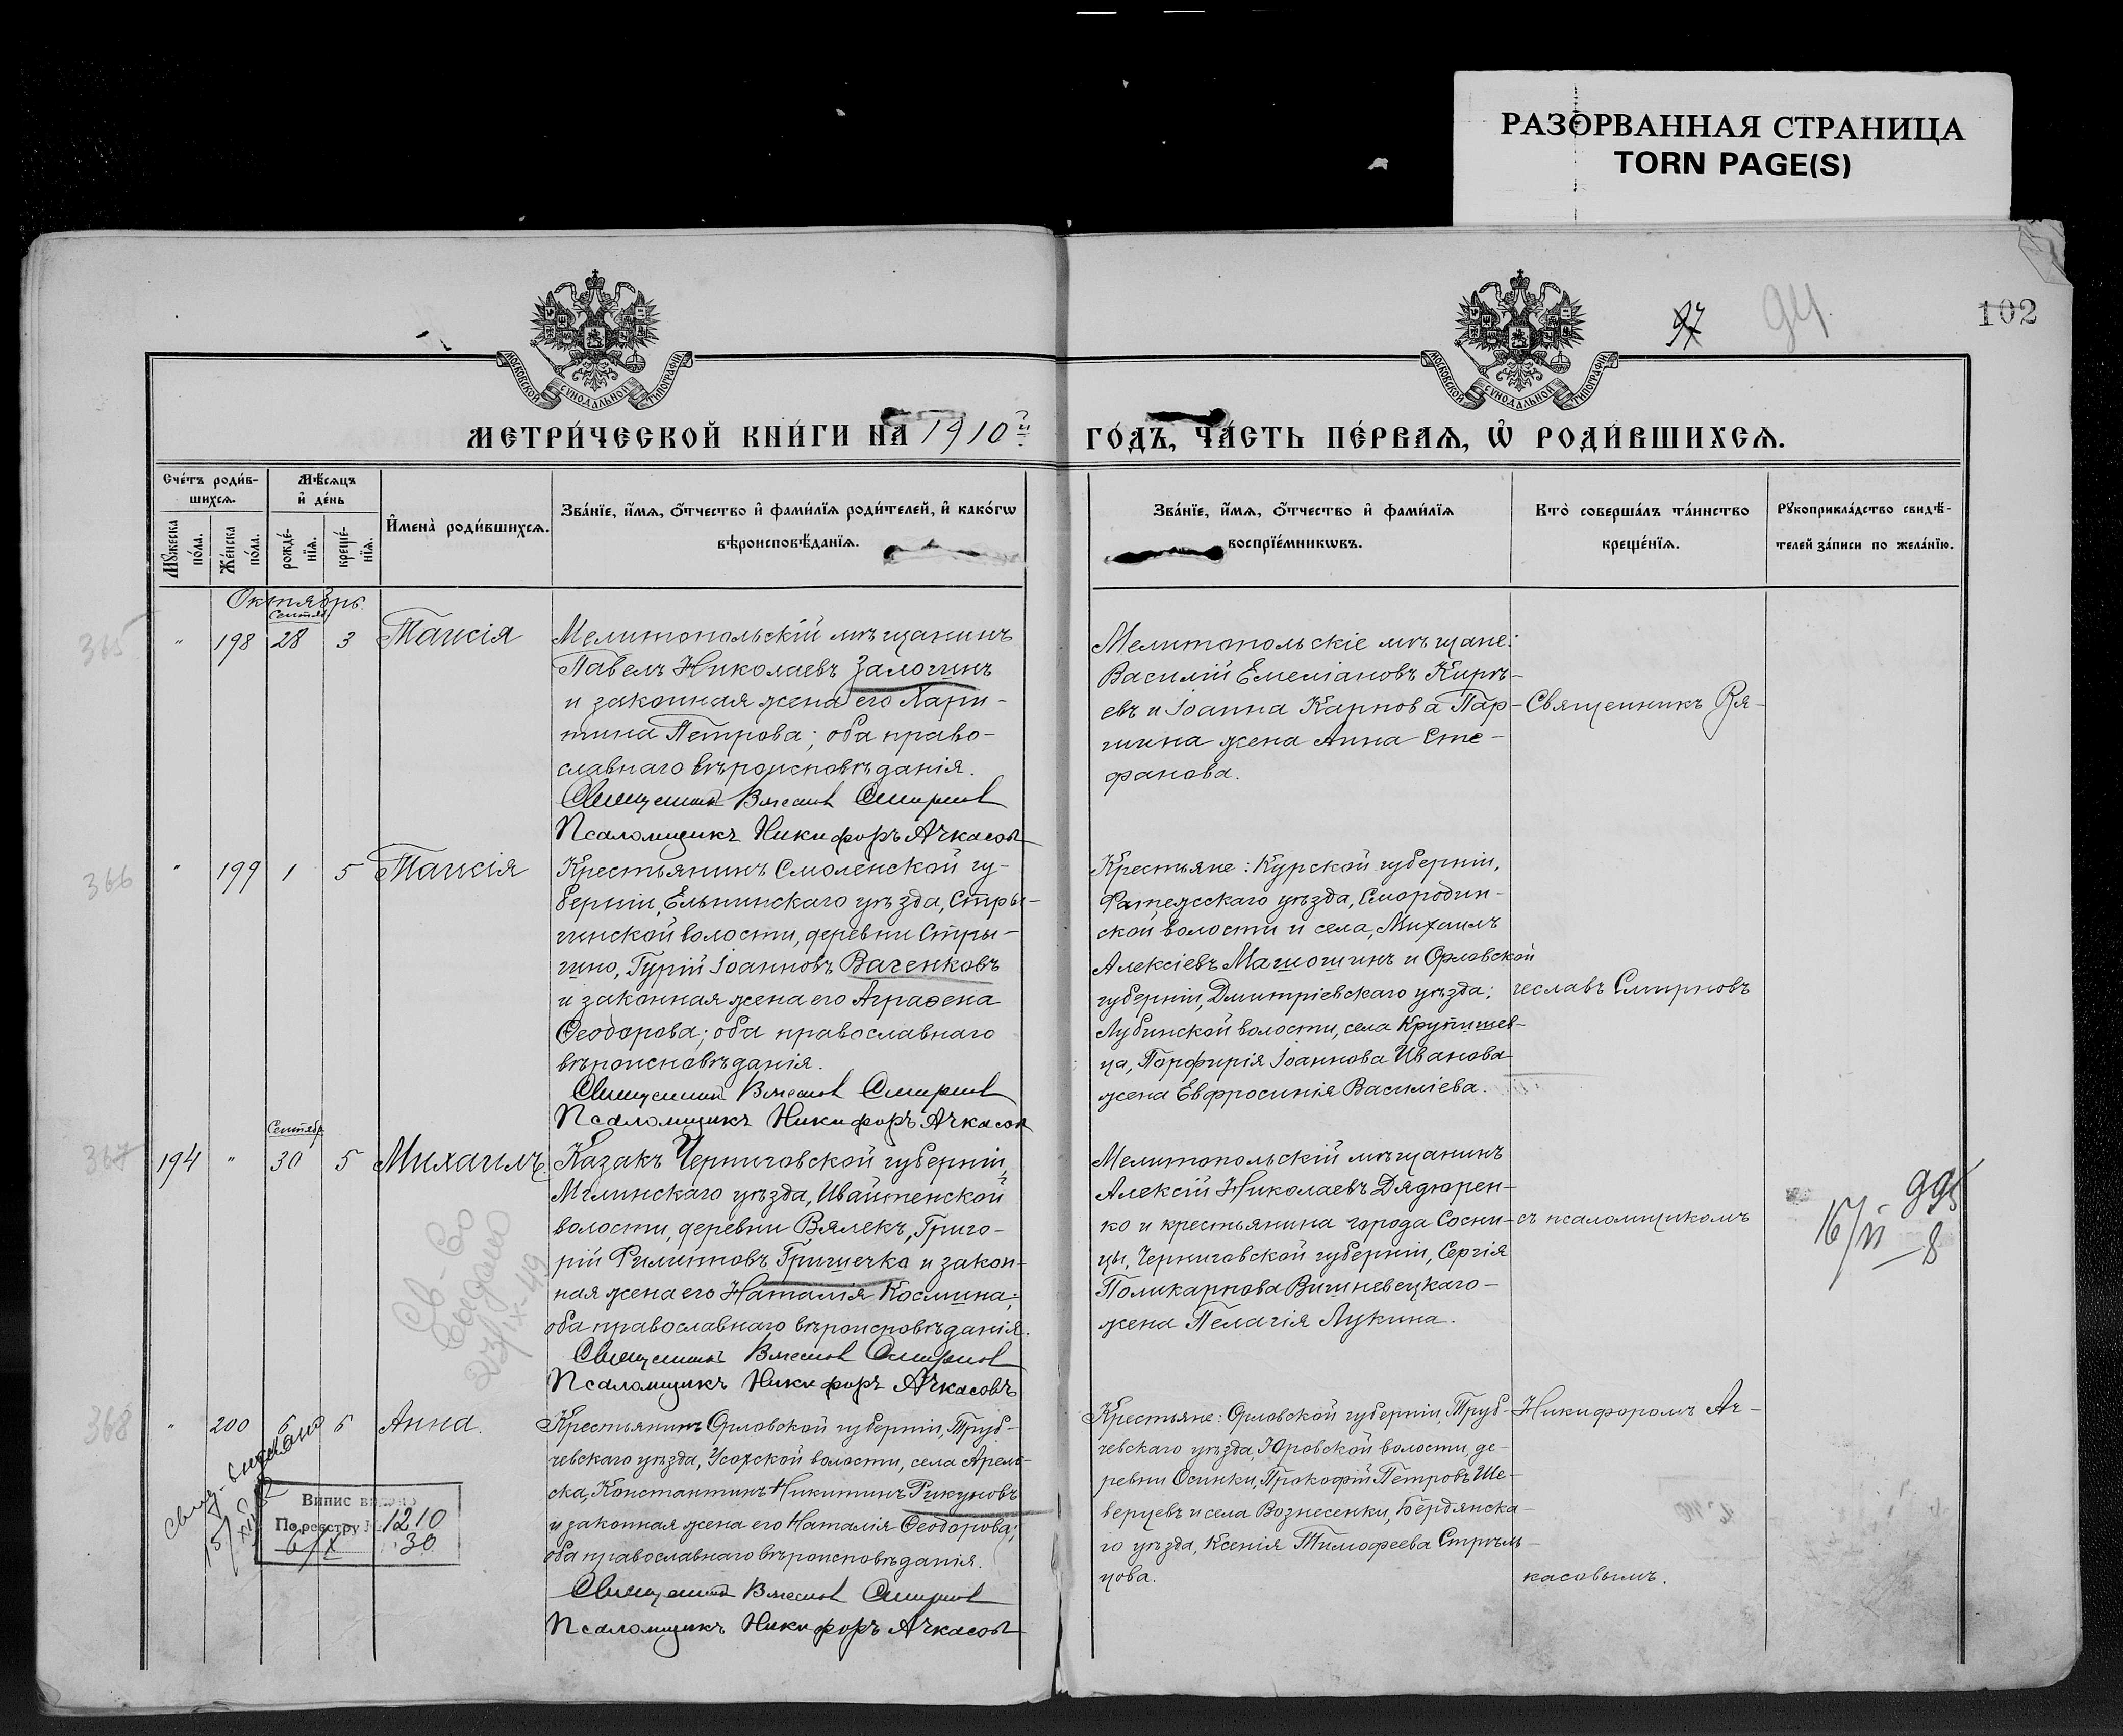 РАЗОРВАННАЯ СТРАНИЦА
TORN PAGE(S)
94
102
МОСКОВСКОЙ СУНОДАЛЬНОЙ ТИПОГРАФІИ
МОСКОВСКОЙ СУНОДАЛЬНОЙ ТИПОГРАФІИ
МЕТРИ́ЧЕСКОЙ КНИ́ГИ НА 1910й
ГО́ДЪ, ЧА́СТЬ ПЕ́РВАЯ, Ѡ҆ РОДИ́ВШИХСЯ.
Сче́тъ роди́в-
шихся.
Мѣ́сяцъ
и҆ де́нь
Мꙋ́жеска по́ла.
Же́нска по́ла.
рожде́-
нїя.
креще́-
нїя.
И҆мена̀ роди́вшихся.
Зва́нїе, и҆́мя, ѻ҆́тчество и҆ фами́лїя роди́телей, и҆ како́гѡ
вѣроисповѣ́данїя.
Зва́нїе, и҆́мя, ѻ҆́тчество и҆ фами́лїя
воспрїе́мникѡвъ.
Кто̀ соверша́лъ та́инство
креще́нїя.
Рꙋкоприкла́дство свидѣ́-
телей за́писи по жела́нїю.
Октябрь.
365
" 198
Сентяб
28 3 Таисія
Мелитопольскій мѣщанинъ
Павелъ Николаевъ Залогинъ
и законная жена его Хари-
тина Петрова; оба право-
славнаго вѣроисповѣданія.
Священникъ Вячеслав Смирнов
Псаломщикъ Никифоръ Ачкасов
Мелитопольскіе мѣщане:
Василій Емеліановъ Кирѣ-
евъ и Іоанна Карпова Пар-
шина жена Анна Сте-
фанова.
Священникъ Вя-
366
" 199 1 5 Таисія
Крестьянинъ Смоленской гу-
берніи, Ельнинскаго уѣзда, Стры-
гинской волости, деревни Стры-
гино, Гурій Іоанновъ Ваченковъ
и законная жена его Аграѳена
Ѳеодорова; оба православнаго
вѣроисповѣданія.
Священникъ Вячеслав Смирнов
Псаломщикъ Никифоръ Ачкасов
Крестьяне: Курской губерніи,
Фатежскаго уѣзда, Смородин-
ской волости и села, Михаилъ
Алексіевъ Машошинъ и Орловской
губерніи, Дмитріевскаго уѣзда;
Лубинской волости, села Крупишев-
ца, Порфирія Іоаннова Иванова
жена Евфросинія Василіева.
чеславъ Смирновъ
367
194 "
Сентябр
30 5 Михаилъ.
Казакъ Черниговской губерніи,
Мглинскаго уѣзда, Ивайтенской
волости, деревни Вялекъ, Григо-
рій Филиповъ Гришечка и закон-
ная жена его Наталія Космина;
оба православнаго вѣроисповѣданія.
Священникъ Вячеслав Смирнов
Псаломщикъ Никифоръ Ачкасовъ
Мелитопольскій мѣщанинъ
Алексій Николаевъ Дядюрен-
ко и крестьянина города Сосни-
цы, Черниговской губерніи, Сергія
Поликарпова Вишневецкаго-
жена Пелагія Лукина.
съ псаломщикомъ
995
16/VI – 8
Св-во
выдано
23/IX-49
368
" 200 5 5 Анна.
Крестьянинъ Орловской губерніи, Труб-
чевскаго уѣзда, Усохской волости, села Арель-
ска, Константинъ Никитинъ Рикуновъ
и законная жена его Наталія Ѳеодорова;
оба православнаго вѣроисповѣданія.
Священникъ Вячеслав Смирнов
Псаломщикъ Никифоръ Ачкасов
Крестьяне: Орловской губерніи, Труб-
чевскаго уѣзда, Юровской волости, де-
ревни Осинки, Прокофій Петровъ Ше-
верцевъ и села Вознесенки, Бердянска-
го уѣзда, Ксенія Тимофеева Стрѣль-
цова.
Никифоромъ Ач-
касовымъ.
Випис видано
По реєстру № 1210
6/X 30